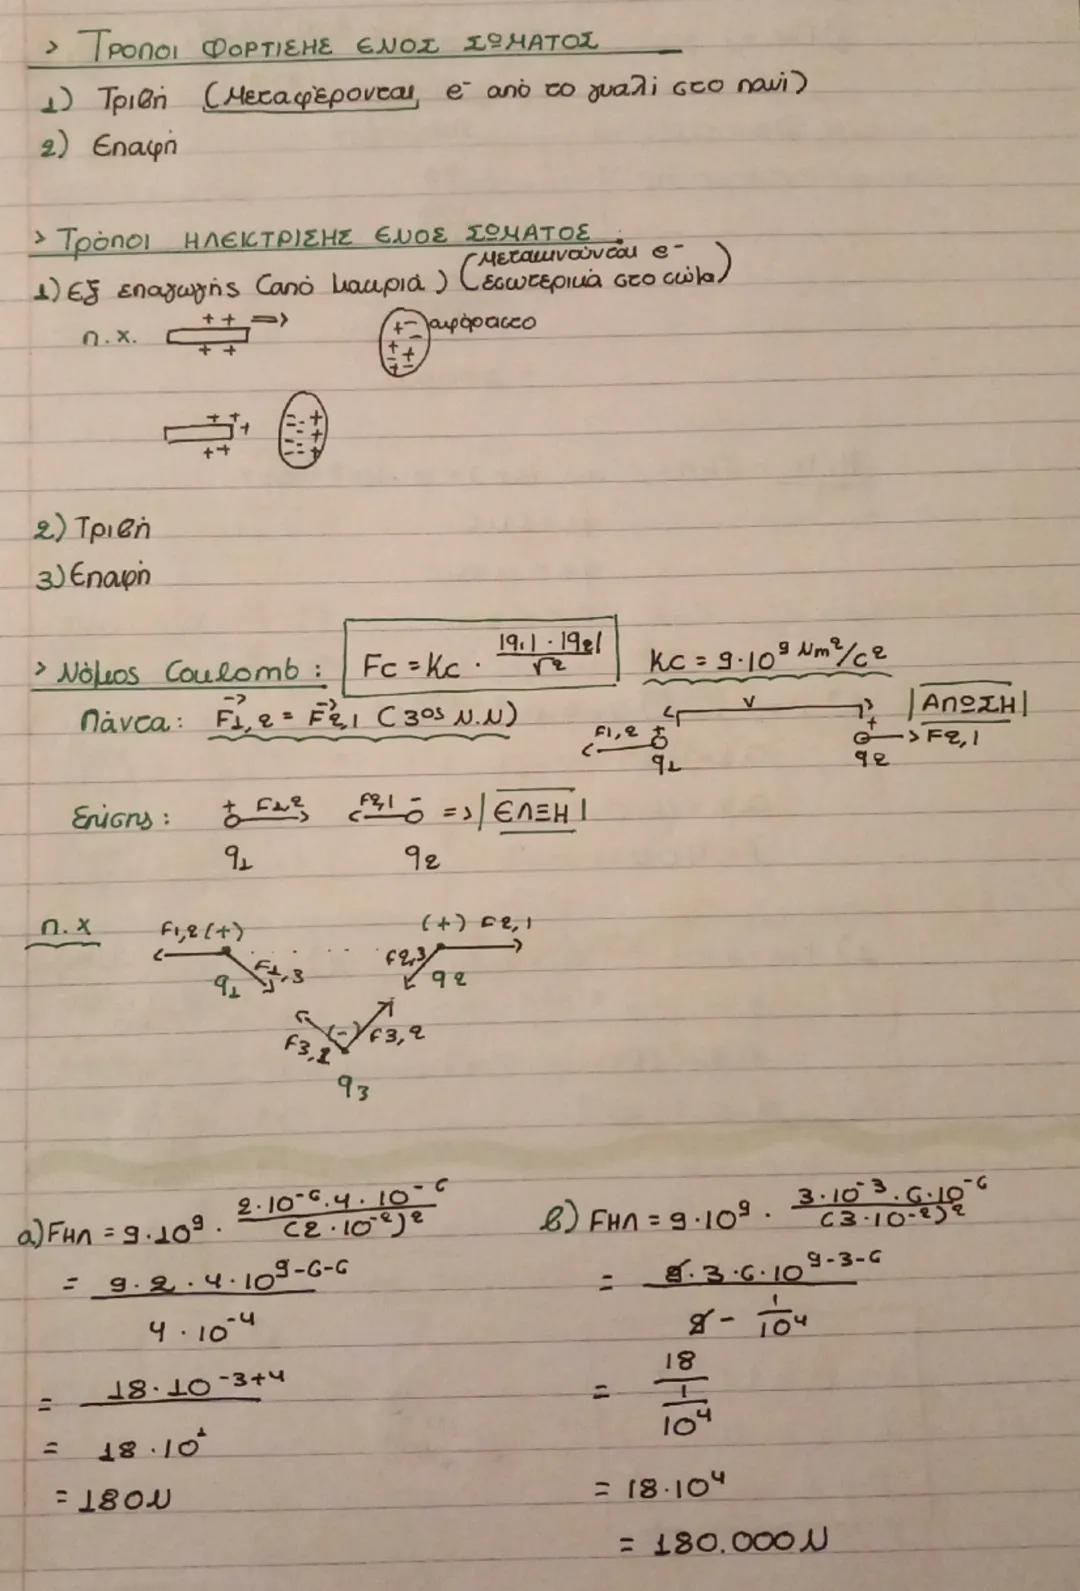 > ΤΡΟΠΟΙ ΦΟΡΤΙΣΗΣ ΕΝΟΣ ΣΩΜΑΤΟΣ
1) Τριβή (Μεταφέρονται e⁻ από το γυαλί στο πανί)
2) Επαφή
> Τρόποι ΗΛΕΚΤΡΙΣΗΣ ΕΝΟΣ ΣΩΜΑΤΟΣ :
1) Εξ επαγωγής (από μακριά) (Μετακινούνται e⁻ εσωτερικά στο σώμα)
π.χ. + + => + + + - + + + - + - αφόρτιστο
+ + + + + - - + - - + - - +
2) Τριβή
3) Επαφή
> Νόμος Coulomb : Fc = Kc · |q₁| · |q₂| / r² Kc = 9·10⁹ Nm²/c²
Πάντα: F₁,₂ = F₂,₁ (3ος Ν.Ν) r |ΑΠΩΣΗ|
F₁,₂ + q₁ + q₂ F₂,₁
Επίσης : + F₁,₂ F₂,₁ - => |ΕΛΞΗ|
q₁ q₂
π.χ F₁,₂ (+) (+) F₂,₁
F₁,₃ F₂,₃
q₁ q₂
F₃,₁ (-) F₃,₂
q₃
α) Fηλ = 9·10⁹ · 2·10⁻⁶·4·10⁻⁶ / (2·10⁻²)²
= 9·2·4·10⁹⁻⁶⁻⁶ / 4·10⁻⁴
= 18·10⁻³⁺⁴
= 18·10¹
= 180N
β) Fηλ = 9·10⁹ · 3·10⁻³·6·10⁻⁶ / (3·10⁻²)²
= 9·3·6·10⁹⁻³⁻⁶ / 9 - 1/10⁴
= 18 / 1/10⁴
= 18·10⁴
= 180.000N